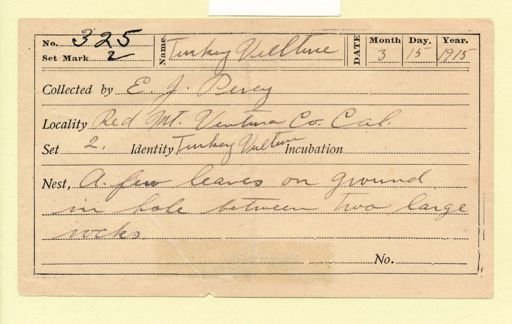 No. 325 Name Turkey Vulture DATE Month Day. Year.
Set Mark 2 3 15 1915
Collected by E. J. Percy
Locality Red Mt. Ventura Co. Cal.
Set 2. Identity Turkey Vulture Incubation
Nest, A few leaves on ground
in hole between two large
rocks
No.